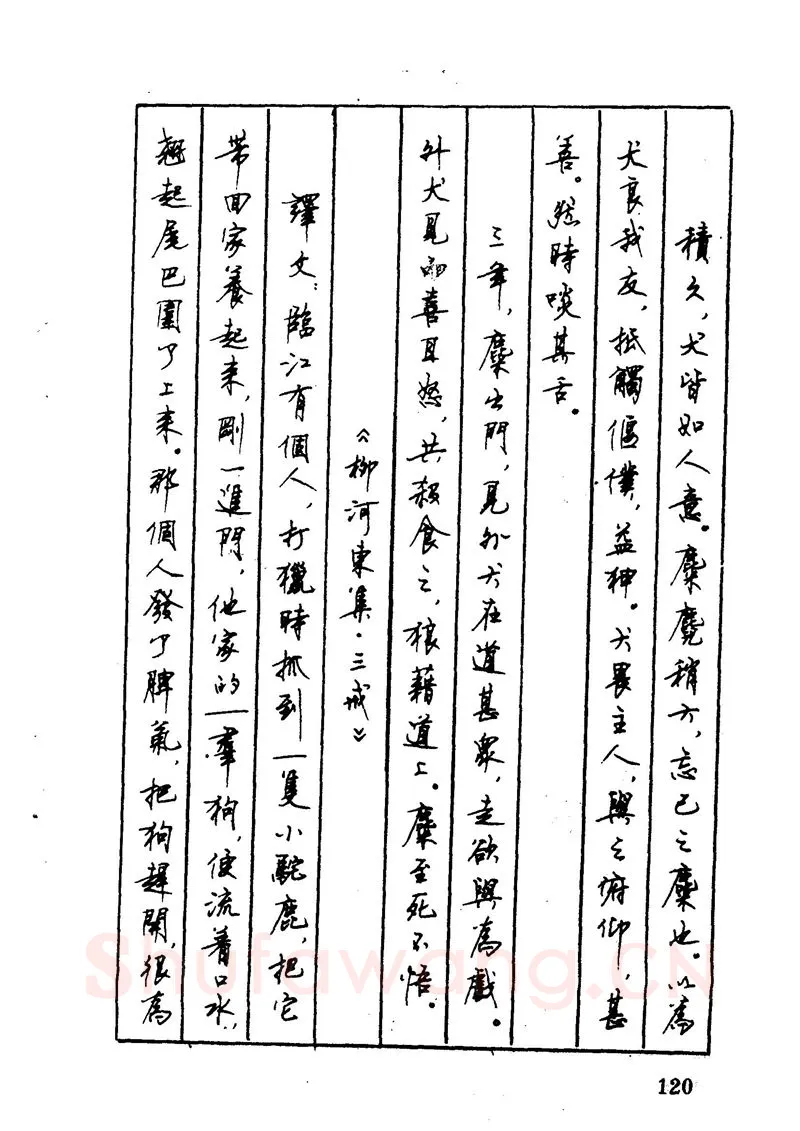 積久，犬皆如人意。麋麑稍大，忘己之麋也。以為
犬良我友，抵觸偃僕，益狎。犬畏主人，與之俯仰，甚
善。然時啖其舌。
三年，麋出門，見外犬在道甚眾，走欲與為戲。
外犬見而喜且怒，共殺食之，狼藉道上。麋至死不悟。
《柳河東集·三戒》
譯文：臨江有個人，打獵時抓到一隻小駝鹿，把它
帶回家養起來，剛一進門，他家的一羣狗，便流着口水，
翹起尾巴圍了上來。那個人發了脾氣，把狗趕開，很為
Shufawang.CN
120